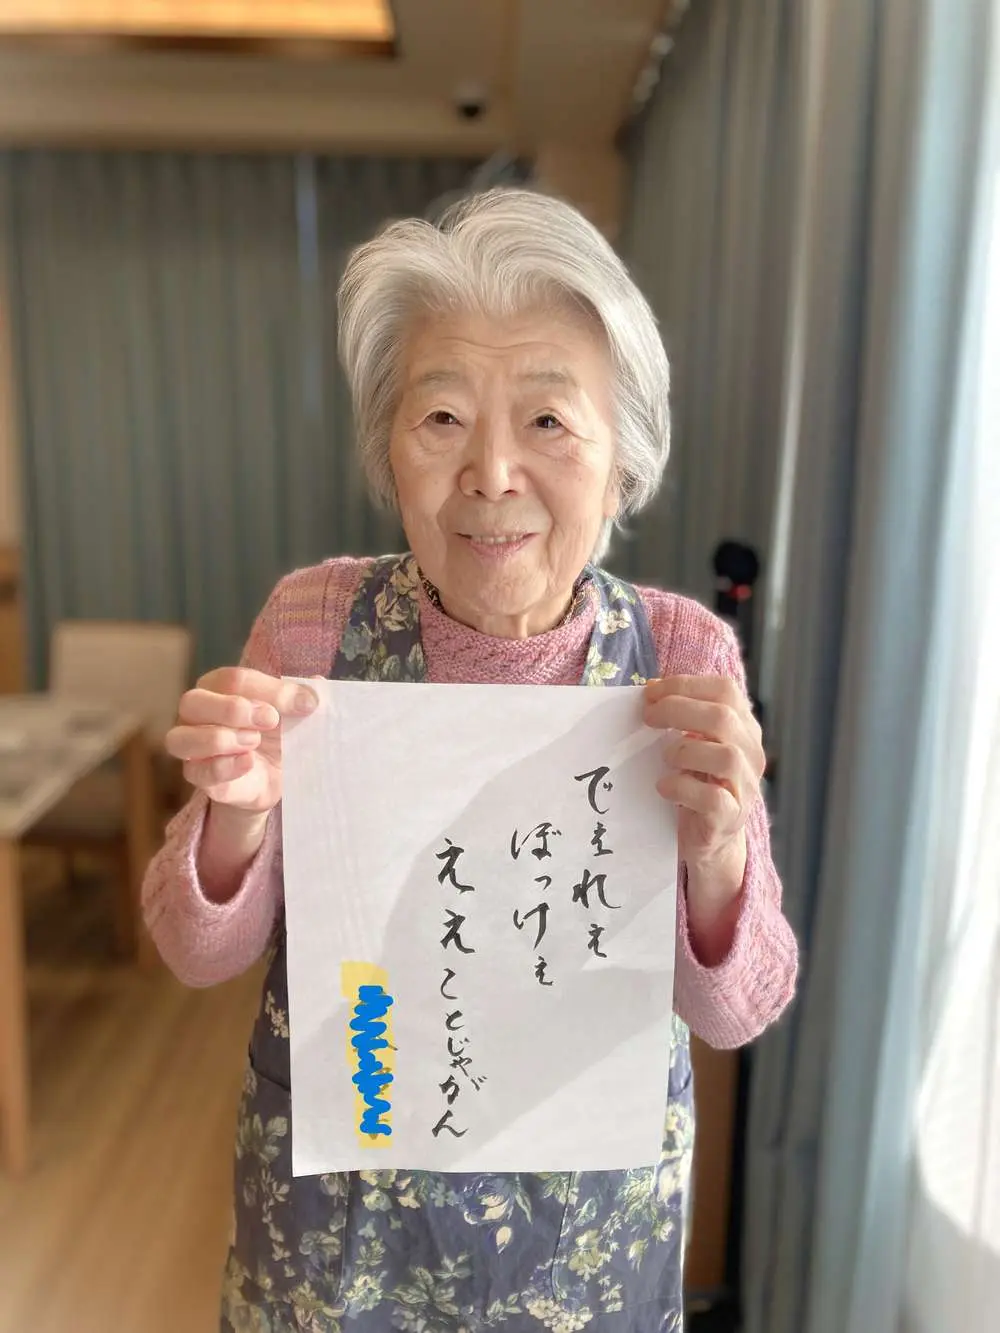 でえれえ
ぼっけえ
ええことじゃがん